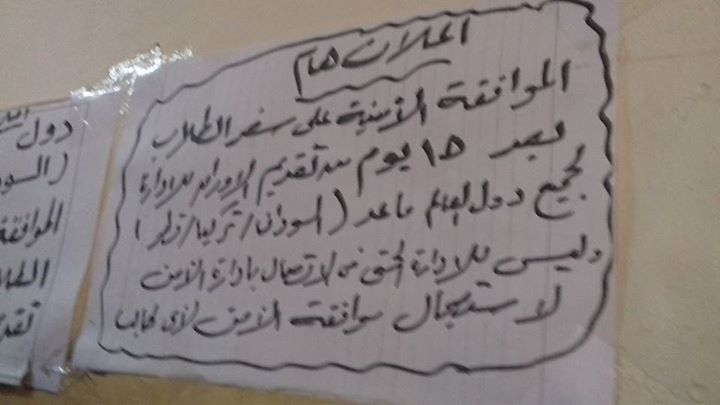 اعلان هام
الموافقة الأمنية على سفر الطلاب
بعد ١٥ يوم من تقديم الاوراق للادارة
لجميع دول العالم ماعدا (السودان / تركيا / قطر)
وليس للادارة الحق فى الاتصال بادارة الأمن
لاستعجال موافقة الامن لأى طالب
دول
(السو
الموافقة
الطلا
تقد